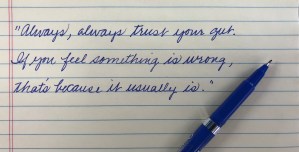 "Always, always trust your gut.
If you feel something is wrong,
that's because it usually is."